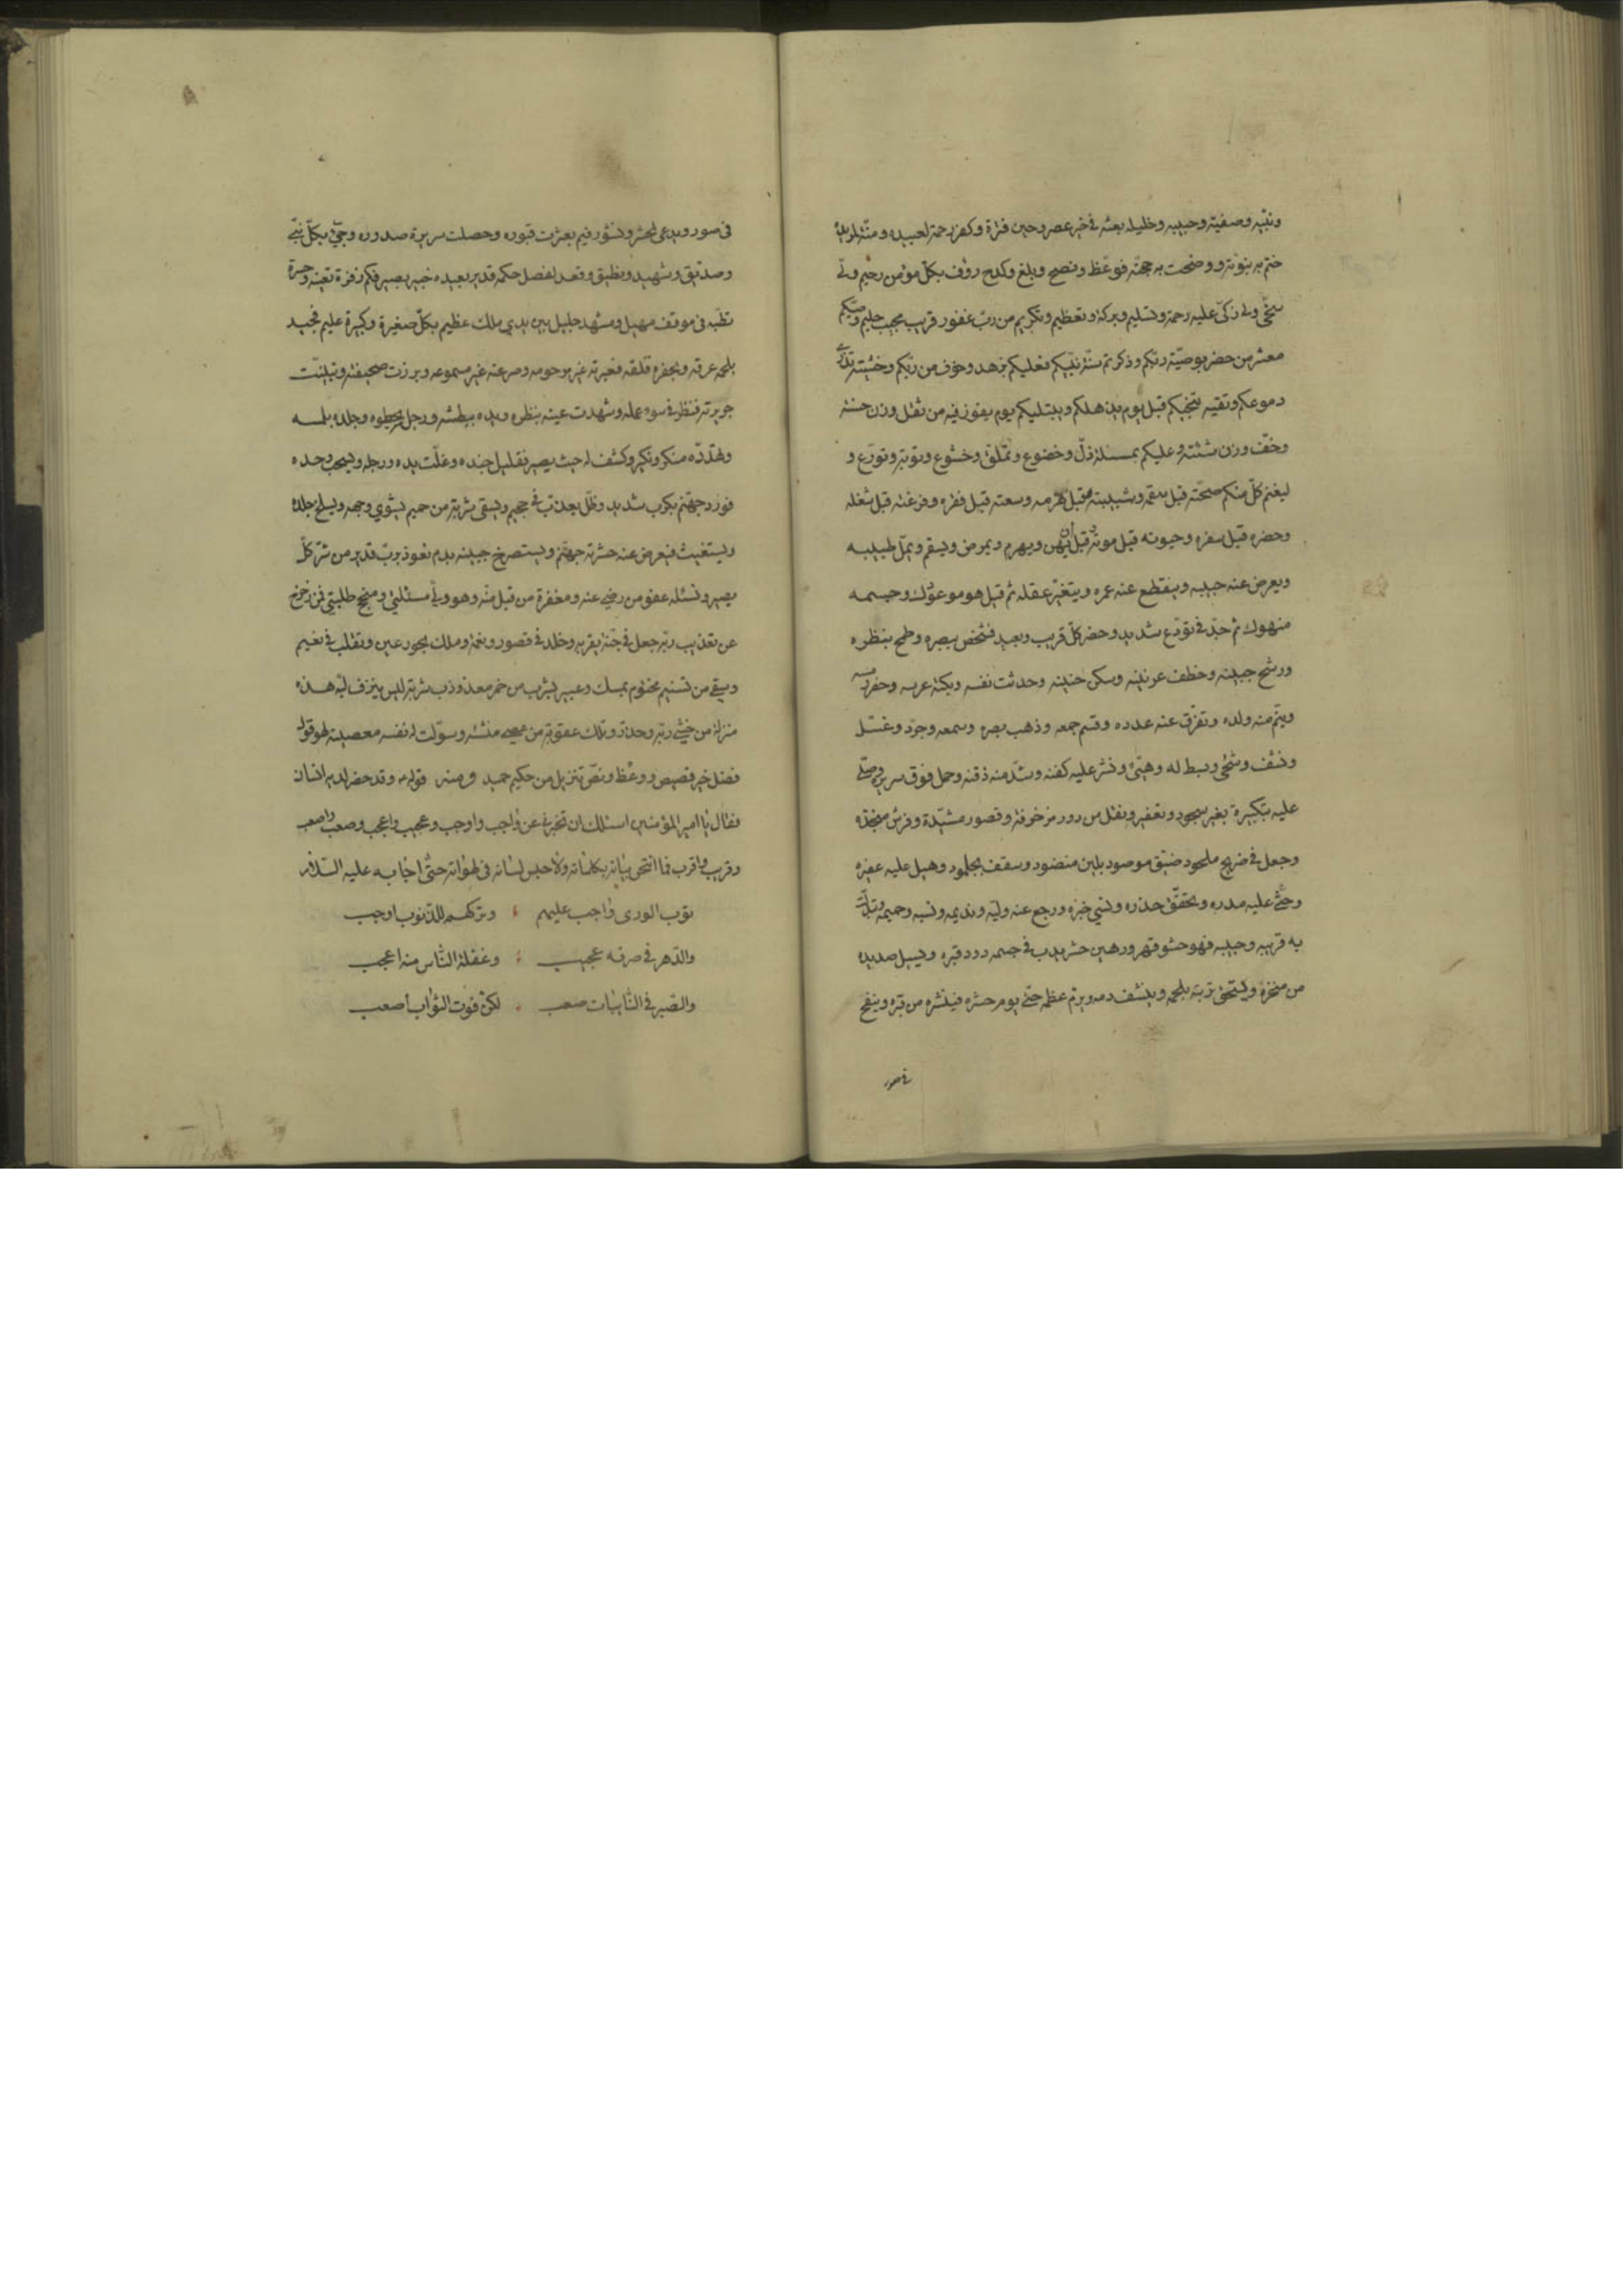 ونبيّه وصفيّه وحبيبه وخليله بعثه في خير عصر وحين فترة وكفر رحمة لعبيده ومنّة لمزيده
ختم به نبوّته ووضحت به حجّته فوعظ ونصح وبلّغ وكدح رؤف بكلّ مؤمن رحيم وليّ
سخيّ ولي زكيّ عليه رحمة وتسليم وبركة وتعظيم وتكريم من ربّ غفور قريب مجيب حليم وصيّتكم
معشر من حضر بوصيّة ربّكم وذكرتم سنّة نبيّكم فعليكم برهبة وخوف من ربّكم وخشيته تذري
دموعكم وتقيه تنجيكم قبل يوم يذهلكم ويبتليكم يوم يفوز فيه من ثقل وزن حسنته
وخفّ وزن سيّئته وعليكم بمسئلة ذلّ وخضوع وتملّق وخشوع وتوبة وتورّع و
ليغنم كلّ منكم صحّته قبل سقمه وشيبته قبل هرمه وسعته قبل فقره وفرغته قبل شغله
وحضره قبل سفره وحيوته قبل موته قبل أن يهن ويهرم ويمرض ويسقم ويملّ طبيبه
ويعرض عنه حبيبه وينقطع عنه عمره ويتغيّر عقله ثم قيل هو موعوك وجسمه
منهوك ثم جدّ في نزع شديد وحضر كلّ قريب وبعيد فشخص ببصره وطمح بنظره
ورشح جبينه وخطف عرنينه وسكن حنينه وحدثت نفسه وبكته عرسه وحفر رمسه
ويتم منه ولده وتفرّق عنه عدده وقسم جمعه وذهب بصره وسمعه وجرّد وغسّل
ونشّف وسجّي وبسط له وهيّئ ونشر عليه كفنه وشدّ منه ذقنه وحمل فوق سرير وصلّي
عليه بتكبيرة بغير سجود وتعفير ونقل من دور مزخرفة وقصور مشيّدة وفرش منجّدة
وجعل في ضريح ملحود ضيّق موصود بلبن منضود وسقّف بجلمود وهيل عليه عفره
وحثي عليه مدره وتحقّق حذره ونسي خبره ورجع عنه وليّه ونديمه ونسبه وحميمه وتبدّلت
به قرينه وحبيبه فهو حشو قبر ورهين حشر يدبّ في جسمه دود قبره ويسيل صديده
من منخره ويسحق تربته بلحمه وينشف دمه ويرمّ عظمه حتّى يوم حشره فينشره من قبره وينفخ
في صور
في صور ويدعى لحشر ونشور فثم بعثرت قبوره وحصلت سريرة صدوره وجيء بكلّ نبيّ
وصدّيق وشهيد ونطيق وقعد لفصل حكمه قدير بعبيده خبير بصير فكم زفرة تعنيه وحسرة
تطبه في موقف مهيل ومشهد جليل بين يدي ملك عظيم بكلّ صغيرة وكبيرة عليم فحينئذ
يلجمه عرقه ويحفزه قلقه فعبرته غير مرحومه وصرخته غير مسموعه وبرزت صحيفته وتبيّنت
جريرته فنظر في سوء عمله وشهدت عينه بنظره ويده ببطشه ورجله بخطوه وجلده بلمسه
ويهدّده منكر ونكير وكشف له حيث يصير فسلسل جيده وغلّت يده ورجله ويسحب وحده
فورد جهنّم بكرب شديد وظلّ يعذّب في جحيم ويسقى شربة من حميم يشوي وجهه ويسلخ جلده
ويستغيث فيعرض عنه خزنة جهنّم ويستصرخ حينه بندم نعوذ بربّ قدير من شرّ كلّ
مصير ونسئله عفو من رضي عنه ومغفرة من قبل منه وهو وليّ مسئلتي ومنجح طلبتي فمن زحزح
عن تعذيب ربّه جعل في جنّة بقربه وخلد في قصور ونعمه وملك بحور عين وتقلّب في نعيم
وسقي من تسنيم مختوم بمسك وعبير يشرب من خمر معذوذب شربه ليس ينزف لبّه هذه
منزلة من خشي ربّه وحذّر وتلك عقوبة من عصى منشئه وسوّلت له نفسه معصيته لهو قول
فصل خير قصص ووعظ ونصّ تنزيل من حكيم حميد ومنه قوله وقد حضر لديه انسان
فقال يا امير المؤمنين اسئلك ان تخبرني عن واجب واوجب وعجيب واعجب وصعب واصعب
وقريب واقرب فما انتحى بيانه بكلماته ولا حبس لسانه في لهواته حتّى اجابه عليه السّلام
توب الورى واجب عليهم وتركهم للذّنوب اوجب
والدّهر في صرفه عجيب وغفلة النّاس منه اعجب
والصّبر في النّائبات صعب لكن فوت الثّواب أصعب